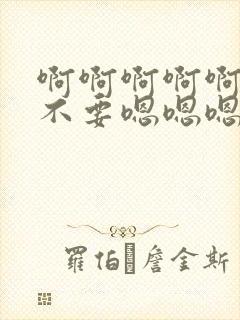 啊啊啊啊啊
不要嗯嗯嗯
羅伯 詹金斯